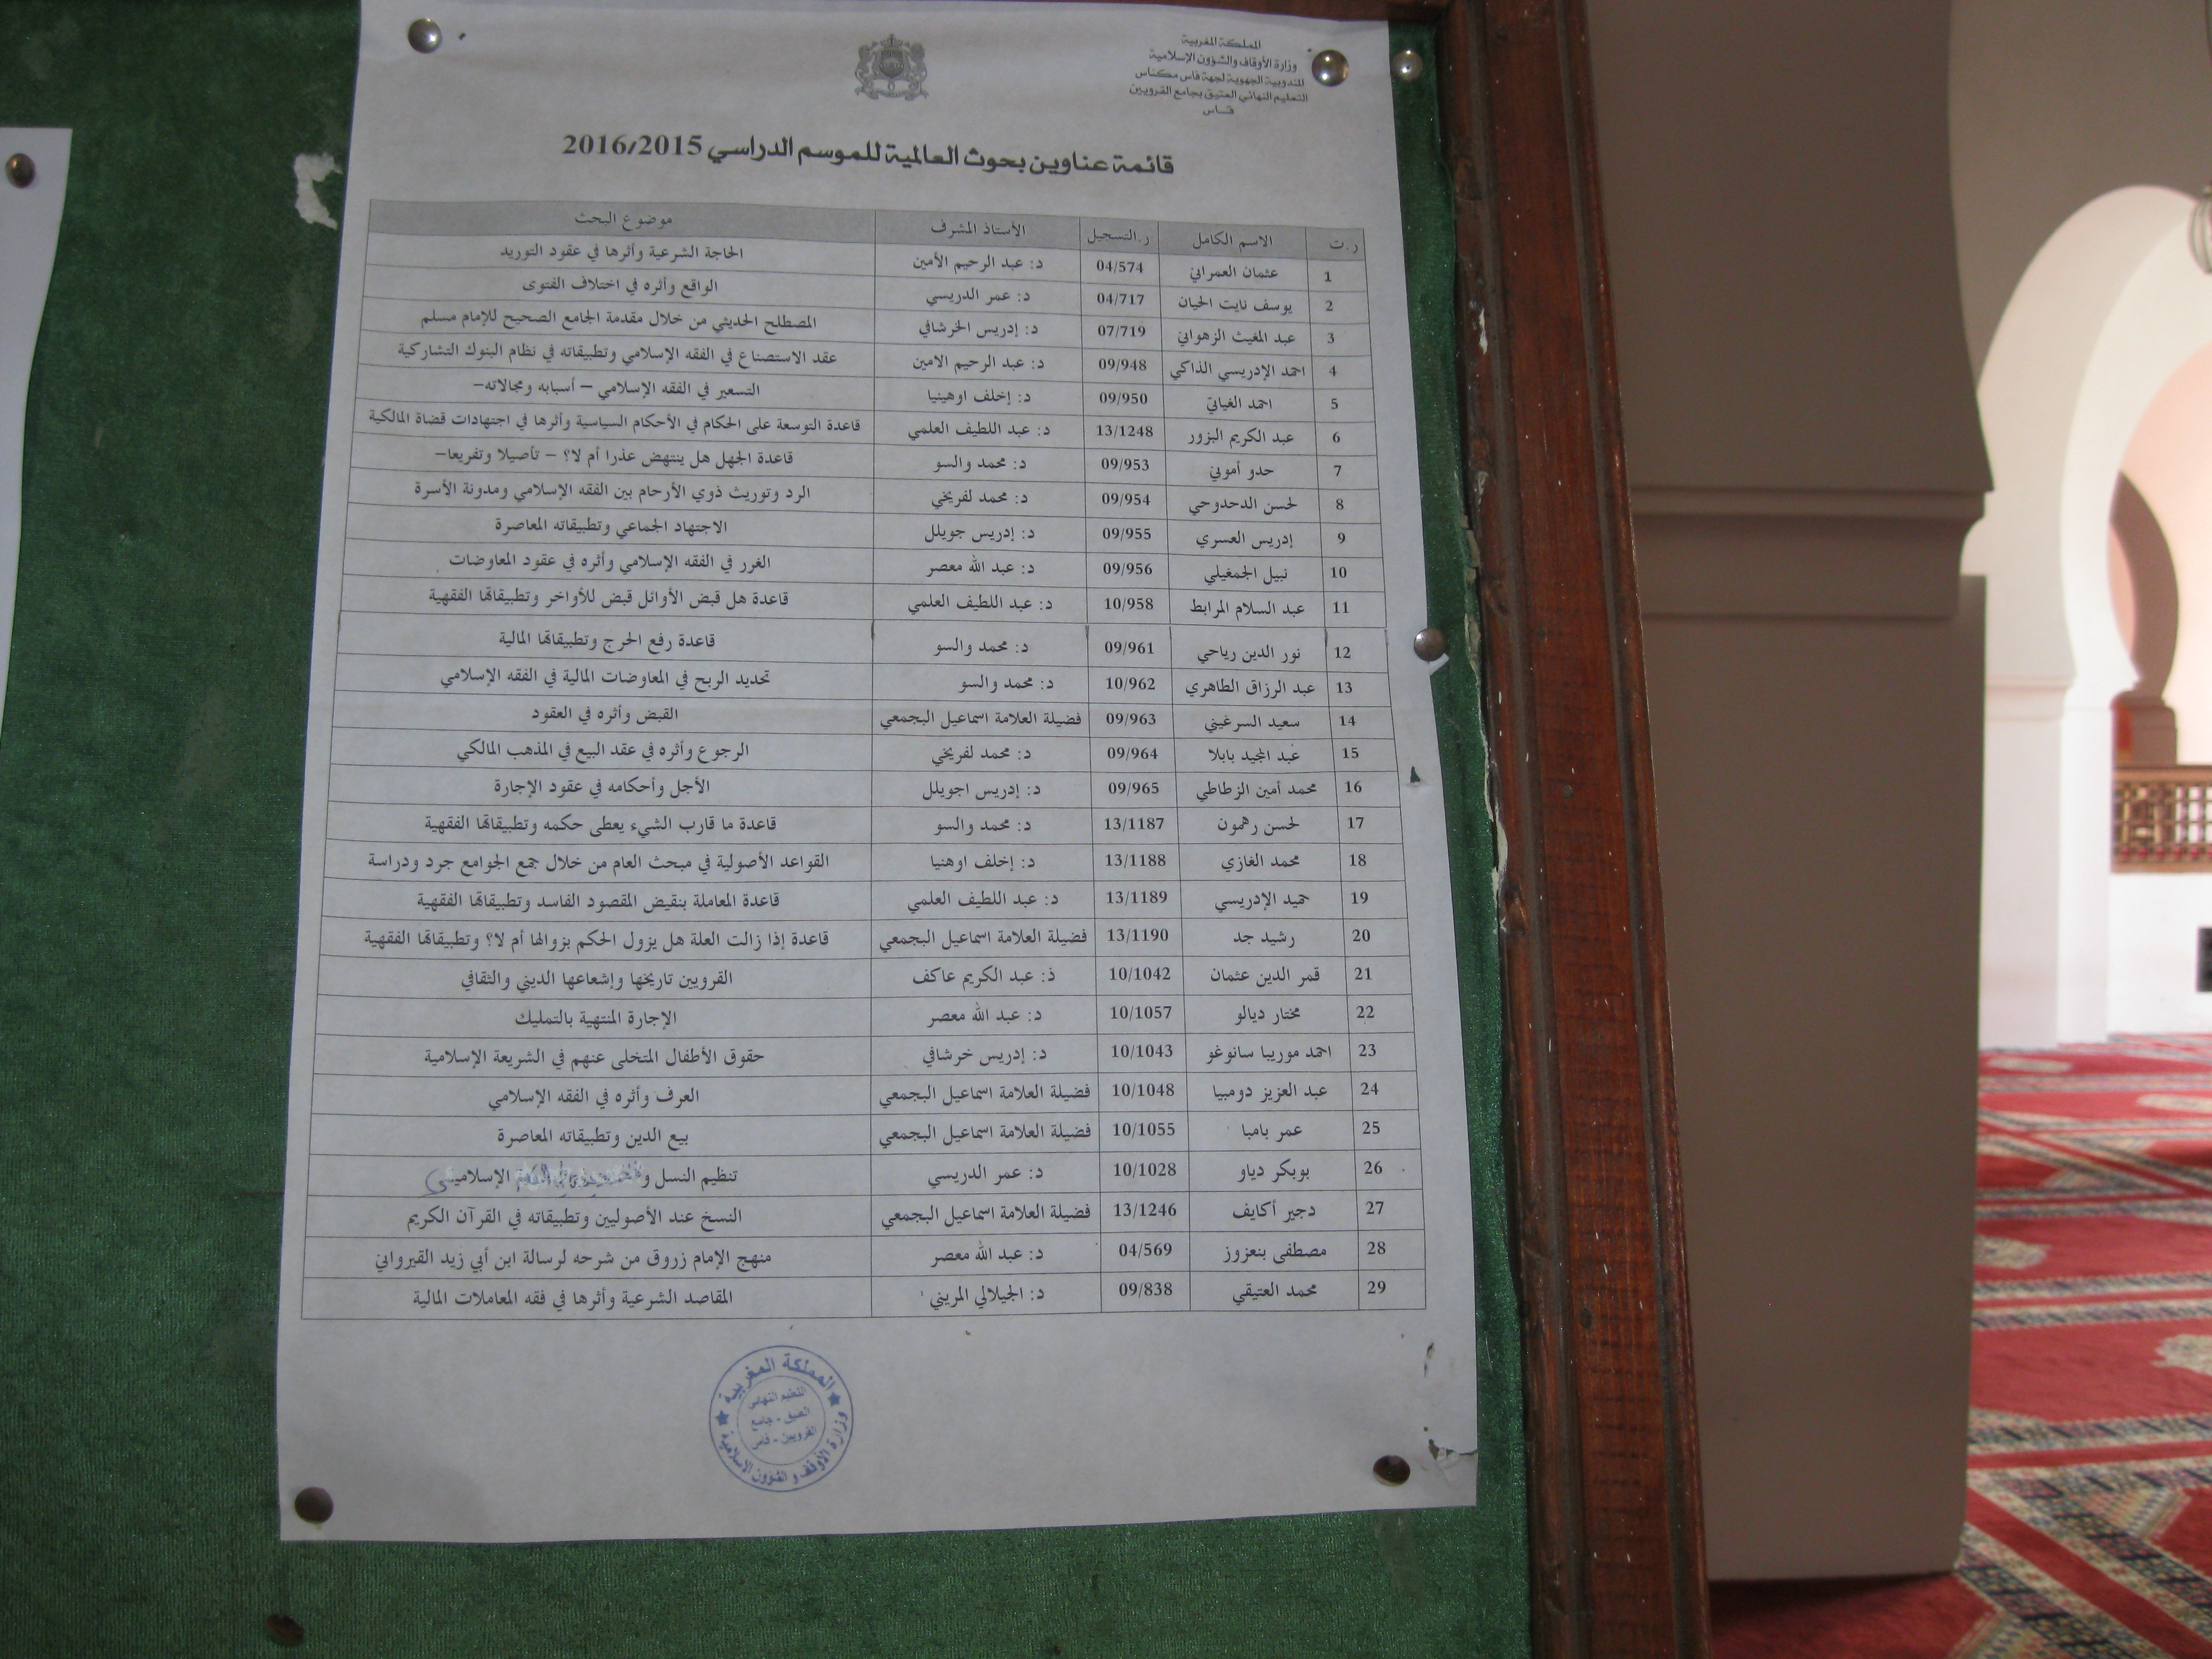 المملكة المغربية
وزارة الأوقاف والشؤون الإسلامية
المندوبية الجهوية لجهة فاس مكناس
التعليم النهائي العتيق بجامع القرويين
فاس
قائمة عناوين بحوث العالمية للموسم الدراسي 2016/2015
ر.ت الاسم الكامل ر.التسجيل الأستاذ المشرف موضوع البحث
1 عثمان العمراني 04/574 د: عبد الرحيم الأمين الحاجة الشرعية وأثرها في عقود التوريد
2 يوسف نايت الحيان 04/717 د: عمر الدريسي الواقع وأثره في اختلاف الفتوى
3 عبد المغيث الزهواني 07/719 د: إدريس الخرشافي المصطلح الحديثي من خلال مقدمة الجامع الصحيح للإمام مسلم
4 احمد الإدريسي الذاكي 09/948 د: عبد الرحيم الامين عقد الاستصناع في الفقه الإسلامي وتطبيقاته في نظام البنوك التشاركية
5 احمد الغياتي 09/950 د: إخلف اوهينيا التسعير في الفقه الإسلامي – أسبابه ومجالاته–
6 عبد الكريم البزور 13/1248 د: عبد اللطيف العلمي قاعدة التوسعة على الحكام في الأحكام السياسية وأثرها في اجتهادات قضاة المالكية
7 حدو أموني 09/953 د: محمد والسو قاعدة الجهل هل ينتهض عذرا أم لا؟ – تأصيلا وتفريعا–
8 لحسن الدحدوحي 09/954 د: محمد لفريخي الرد وتوريث ذوي الأرحام بين الفقه الإسلامي ومدونة الأسرة
9 إدريس العسري 09/955 د: إدريس جويلل الاجتهاد الجماعي وتطبيقاته المعاصرة
10 نبيل الجمغيلي 09/956 د: عبد الله معصر الغرر في الفقه الإسلامي وأثره في عقود المعاوضات
11 عبد السلام المرابط 10/958 د: عبد اللطيف العلمي قاعدة هل قبض الأوائل قبض للأواخر وتطبيقاتها الفقهية
12 نور الدين رياحي 09/961 د: محمد والسو قاعدة رفع الحرج وتطبيقاتها المالية
13 عبد الرزاق الطاهري 10/962 د: محمد والسو تحديد الربح في المعاوضات المالية في الفقه الإسلامي
14 سعيد السرغيني 09/963 فضيلة العلامة اسماعيل البجمعي القبض وأثره في العقود
15 عبد المجيد بابلا 09/964 د: محمد لفريخي الرجوع وأثره في عقد البيع في المذهب المالكي
16 محمد أمين الزطاطي 09/965 د: إدريس اجويلل الأجل وأحكامه في عقود الإجارة
17 لحسن رحمون 13/1187 د: محمد والسو قاعدة ما قارب الشيء يعطى حكمه وتطبيقاتها الفقهية
18 محمد الغازي 13/1188 د: إخلف اوهنيا القواعد الأصولية في مبحث العام من خلال جمع الجوامع جرد ودراسة
19 حميد الإدريسي 13/1189 د: عبد اللطيف العلمي قاعدة المعاملة بنقيض المقصود الفاسد وتطبيقاتها الفقهية
20 رشيد جد 13/1190 فضيلة العلامة اسماعيل البجمعي قاعدة إذا زالت العلة هل يزول الحكم بزوالها أم لا؟ وتطبيقاتها الفقهية
21 قمر الدين عثمان 10/1042 ذ: عبد الكريم عاكف القرويين تاريخها وإشعاعها الديني والثقافي
22 مختار ديالو 10/1057 د: عبد الله معصر الإجارة المنتهية بالتمليك
23 احمد موريبا سانوغو 10/1043 د: إدريس خرشافي حقوق الأطفال المتخلى عنهم في الشريعة الإسلامية
24 عبد العزيز دومبيا 10/1048 فضيلة العلامة اسماعيل البجمعي العرف وأثره في الفقه الإسلامي
25 عمر بامبا 10/1055 فضيلة العلامة اسماعيل البجمعي بيع الدين وتطبيقاته المعاصرة
26 بوبكر دياو 10/1028 د: عمر الدريسي تنظيم النسل الإسلامي
27 دجير أكايف 13/1246 فضيلة العلامة اسماعيل البجمعي النسخ عند الأصوليين وتطبيقاته في القرآن الكريم
28 مصطفى بنعزوز 04/569 د: عبد الله معصر منهج الإمام زروق من شرحه لرسالة ابن أبي زيد القيرواني
29 محمد العتيقي 09/838 د: الجيلالي المريني المقاصد الشرعية وأثرها في فقه المعاملات المالية
المملكة المغربية
وزارة الأوقاف و الشؤون الاسلامية
التعليم النهائي
العتيق - جامع
القرويين - فاس